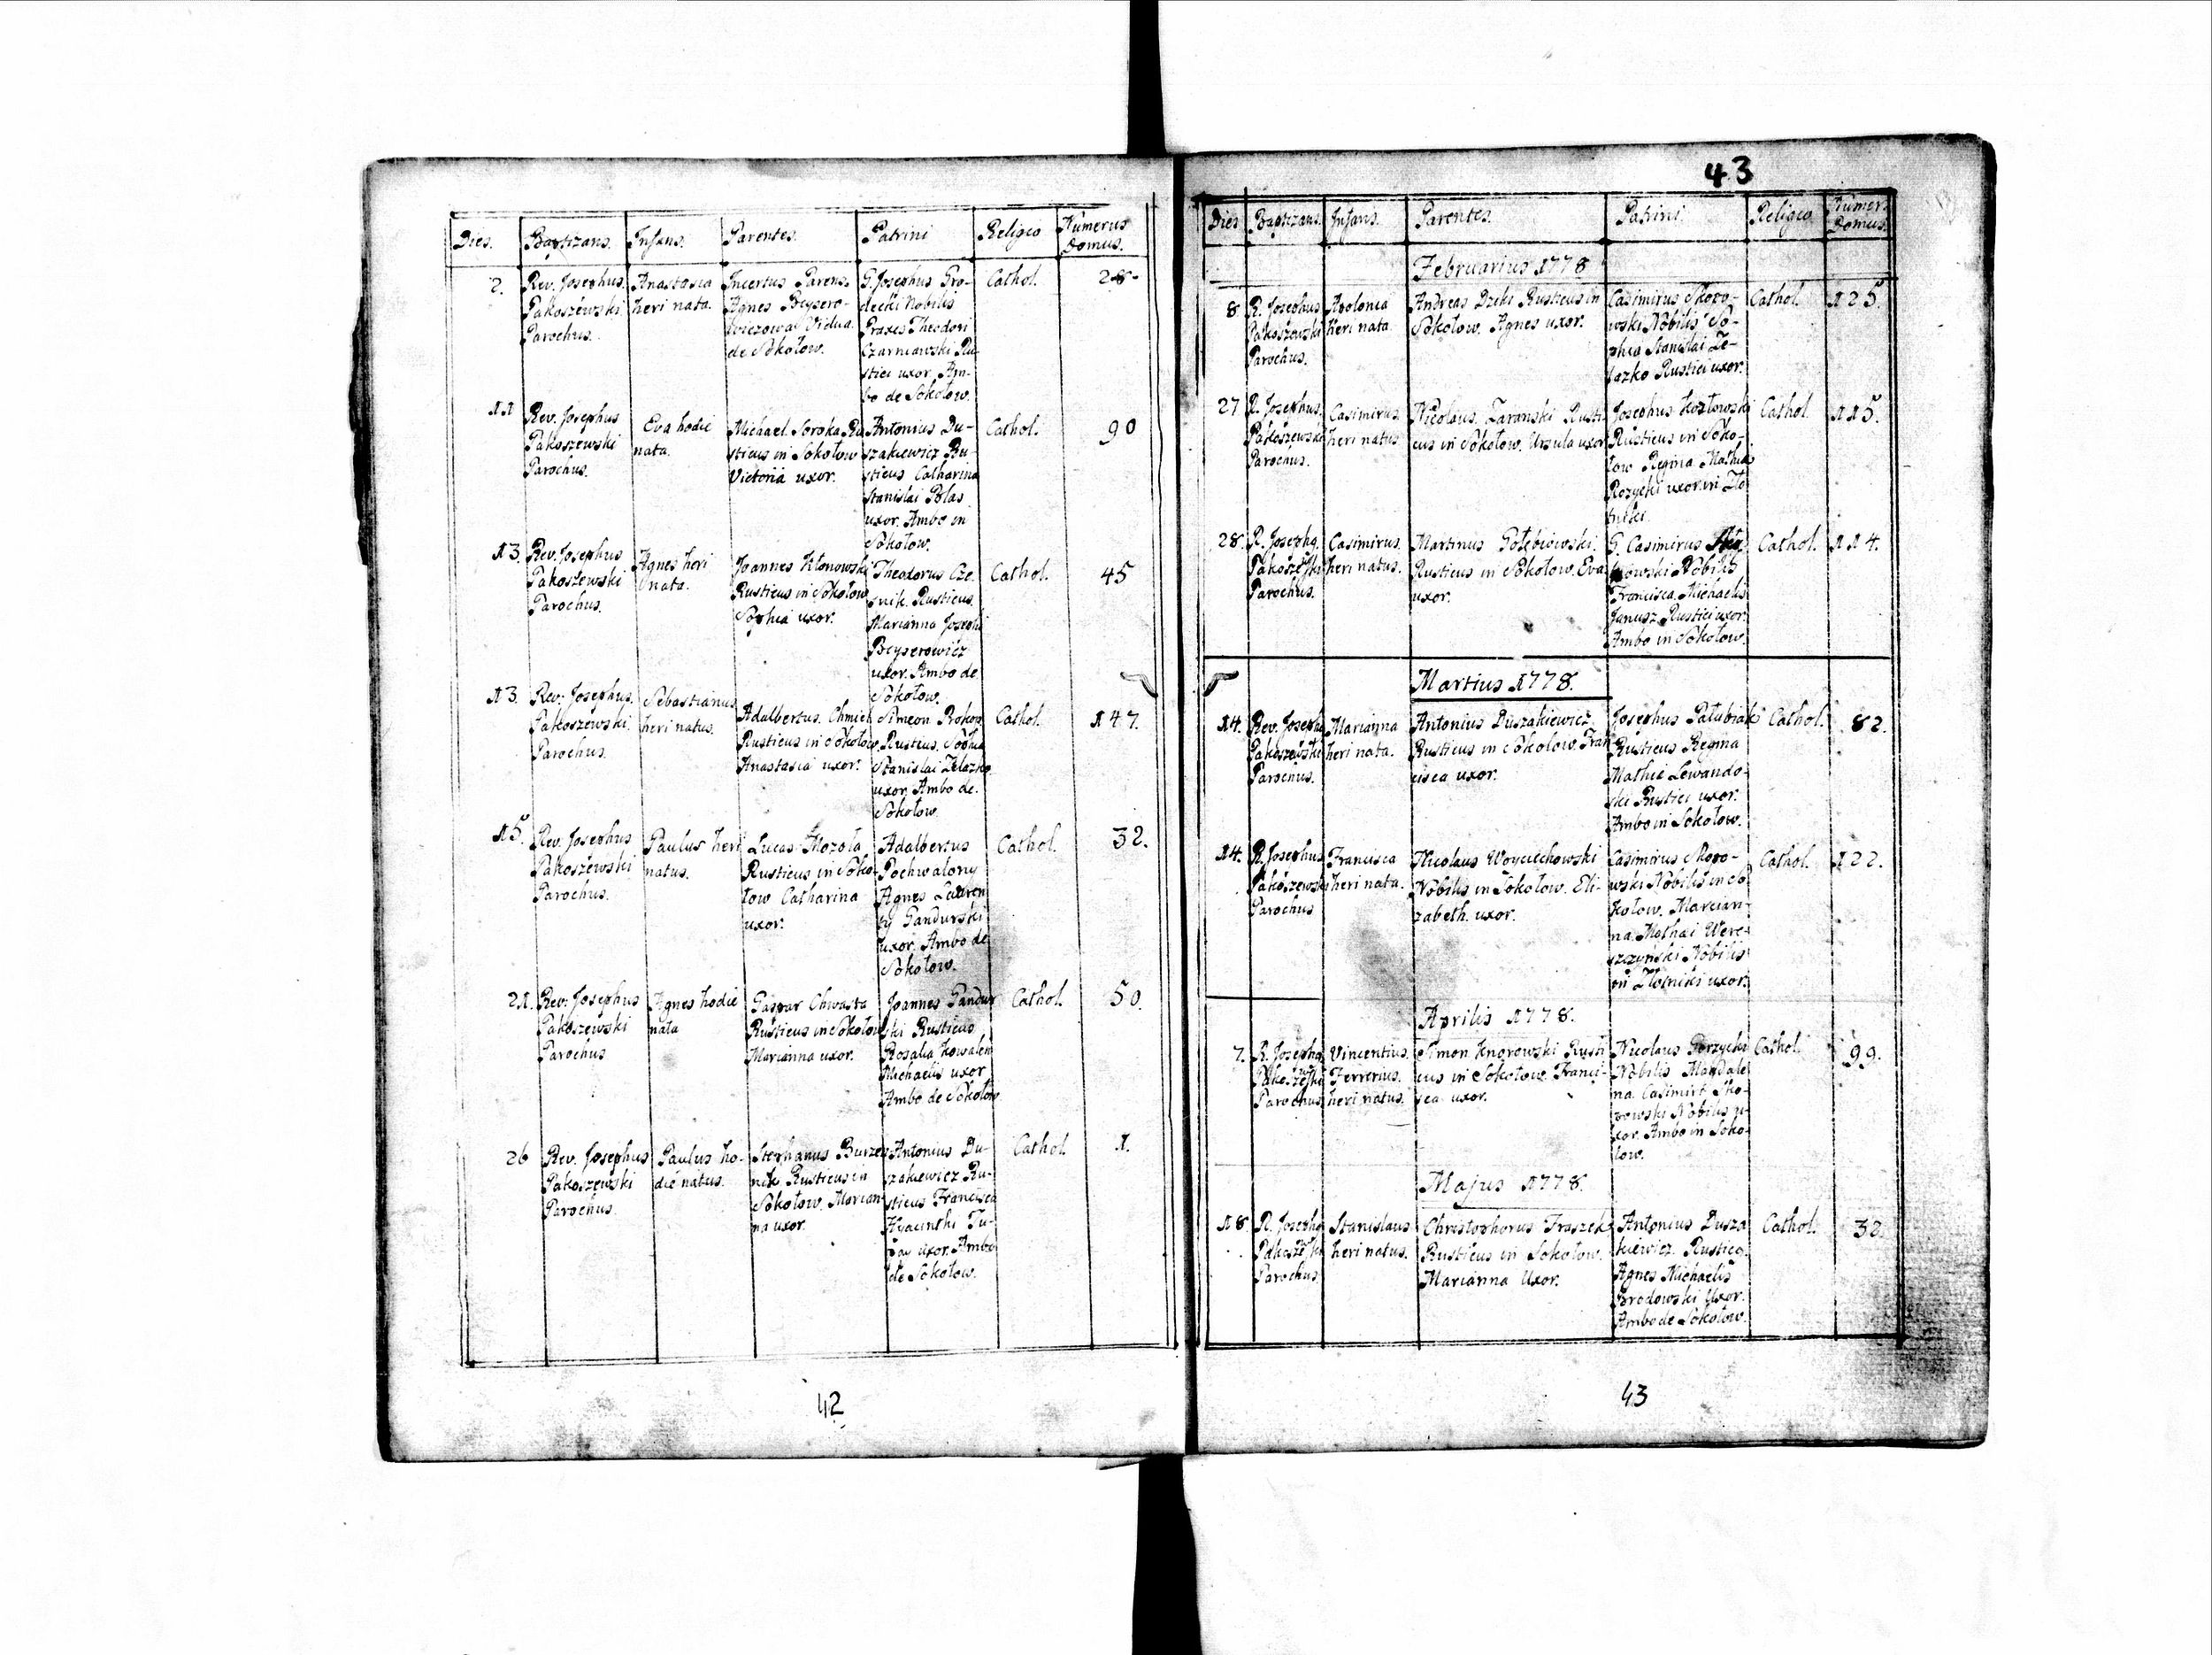 Dies. Baptizans. Infans. Parentes. Patrini Religio Numerus
Domus.
2. Rev. Josephus Pakoszewski Parochus.
Anastasia heri nata.
Incertus Parens.
Agnes
Vidua
de Sokołow.
G. Josephus Gro-
decki Nobilis
Praxes Theodori
Czarniawski Ru-
stici uxor. Am-
bo de Sokołow.
Cathol.
28.
11
Rev. Josephus
Pakoszewski
Parochus.
Eva hodie
nata.
Michael Soroka Ru
sticus in Sokołow
Victoria uxor.
Antonius Du-
szakiewicz Ru-
sticus Catharina
Stanislai Polas
uxor. Ambo in
Sokołow.
Cathol.
90
13.
Rev. Josephus
Pakoszewski
Parochus.
Agnes heri
nata.
Joannes Kłonowski
Rusticus in Sokołow
Sophia uxor.
Theodorus Cze-
snik Rusticus.
Marianna Josephi
Beyserowicz
uxor. Ambo de
Sokołow.
Cathol.
45
13.
Rev. Josephus.
Pakoszewski
Parochus.
Sebastianus
heri natus.
Adalbertus Chmiel
Rusticus in Sokołow.
Anastasia uxor.
Simeon Prokop
Rusticus. Sophia
Stanislai Zelazko
uxor, Ambo de.
Sokołow.
Cathol.
147.
15.
Rev. Josephus
Pakoszewski
Parochus.
Paulus heri
natus.
Lucas Mozoła
Rusticus in Soko-
łow Catharina
uxor.
Adalbertus
Pochwalony
Agnes Lauren
ty Gandurski
uxor. Ambo de
Sokołow.
Cathol.
32.
21.
Rev: Josephus
Pakoszewski
Parochus
Agnes hodie
nata
Gaspar Chwasta
Rusticus in Sokołow
Marianna uxor.
Joannes Gandur
ski Rusticus,
Rosalia Kowalen
Michaelis uxor
Ambo de Sokołow
Cathol.
50.
26
Rev. Josephus
Pakoszewski
Parochus
Paulus ho-
die natus.
Stephanus Burzen
nik Rusticus in
Sokołow. Marian
na uxor.
Antonius Du-
szakiewicz Ru-
sticus Francisca
Hyacinthi
uxor. Ambo
de Sokołow.
Cathol.
1.
42
43
Dies Baptizans. Infans. Parentes. Patrini. Religio Numer.
Domus.
Februarius 1778
8.
R. Josephus
Pakoszewski
Parochus.
Apolonia
heri nata.
Andreas Dziki Rusticus in
Sokołow. Agnes uxor.
Casimirus Skoro-
wski Nobilis So-
phia Stanislai Ze-
lazko Rustici uxor.
Cathol.
125.
27
R. Josephus.
Pakoszewski
Parochus.
Casimirus.
heri natus
Nicolaus. Zaranski Rusti
cus in Sokołow. Ursula uxor
Josephus Kozłowski
Rusticus in Soko-
łow Regina Mathiae
Rozycki uxor. in Zło
tniki.
Cathol.
115.
28.
R. Josephq.
Pakoszewski
Parochus.
Casimirus.
heri natus.
Martinus Gołębiowski.
Rusticus in Sokołow. Eva
uxor.
G. Casimirus
Nobilis
Francisca Michaelis
Janusz Rustici uxor.
Ambo in Sokołow.
Cathol.
114.
Martius 1778.
14.
Rev. Josephq
Pakoszewski
Parochus.
Marianna
heri nata.
Antonius Duszakiewicz.
Rusticus in Sokołow. Fran
cisca uxor.
Josephus Pałubiak
Rusticus Regina
Mathie Lewando-
ski Rustici uxor.
Ambo in Sokołow.
Cathol.
82.
14.
R. Josephus
Pakoszewski
Parochus
Francisca
heri nata.
Nicolaus Woyciechowski
Nobilis in Sokołow. Eli-
zabeth. uxor.
Casimirus Skoro-
wski Nobilis in So
kołow. Marian-
na. Mathai Were-
szczyński Nobilis
in Złotniki uxor.
Cathol.
122.
Aprilis 1778.
7.
R. Josephq
Pakoszewski
Parochus
Vincentius.
Ferrerius.
heri natus.
Simon Knorowski Rusti
cus in Sokołow. Franci-
sca uxor.
Nicolaus Gorzycki
Nobilis Magdale
na Casimiri Sko-
rowski Nobilis u-
xor. Ambo in Soko-
łow.
Cathol.
99.
Majus 1778.
18.
R. Josephq
Pakoszewski
Parochus
Stanislaus
heri natus.
Christophorus Fraszek
Rusticus in Sokołow.
Marianna Uxor.
Antonius Dusza
kiewicz. Rusticq.
Agnes Michaelis
Brodowski Uxor.
Ambo de Sokołow.
Cathol.
32.
43